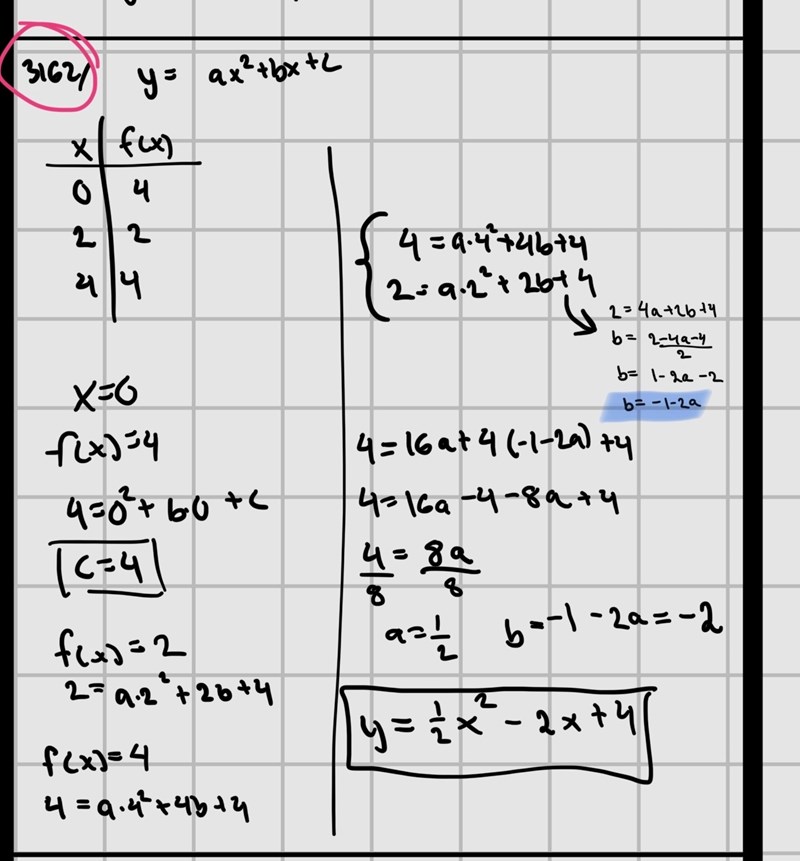 3162/ y = ax²+bx+c
x f(x)
0 4
2 2
4 4
x=0
f(x)=4
4=0²+b0+c
c=4
f(x)=2
2=a·2²+2b+4
f(x)=4
4=a·4²+4b+4
4=a·4²+4b+4
2=a·2²+2b+4
2=4a+2b+4
b= 2-4a-4/2
b= 1-2a-2
b=-1-2a
4=16a+4(-1-2a)+4
4=16a-4-8a+4
4/8=8a/8
a=1/2 b=-1-2a=-2
y=1/2x²-2x+4